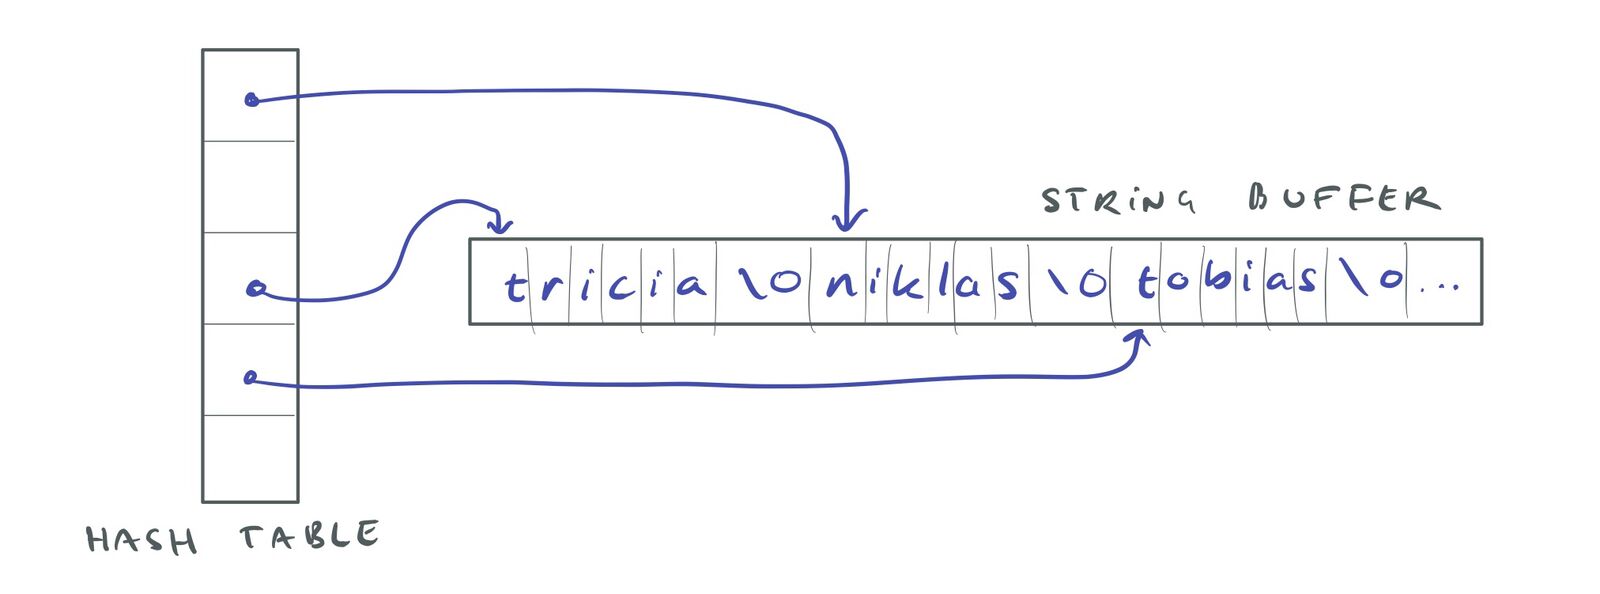 STRING BUFFER
tricia\0niklas\0tobias\0...
HASH TABLE